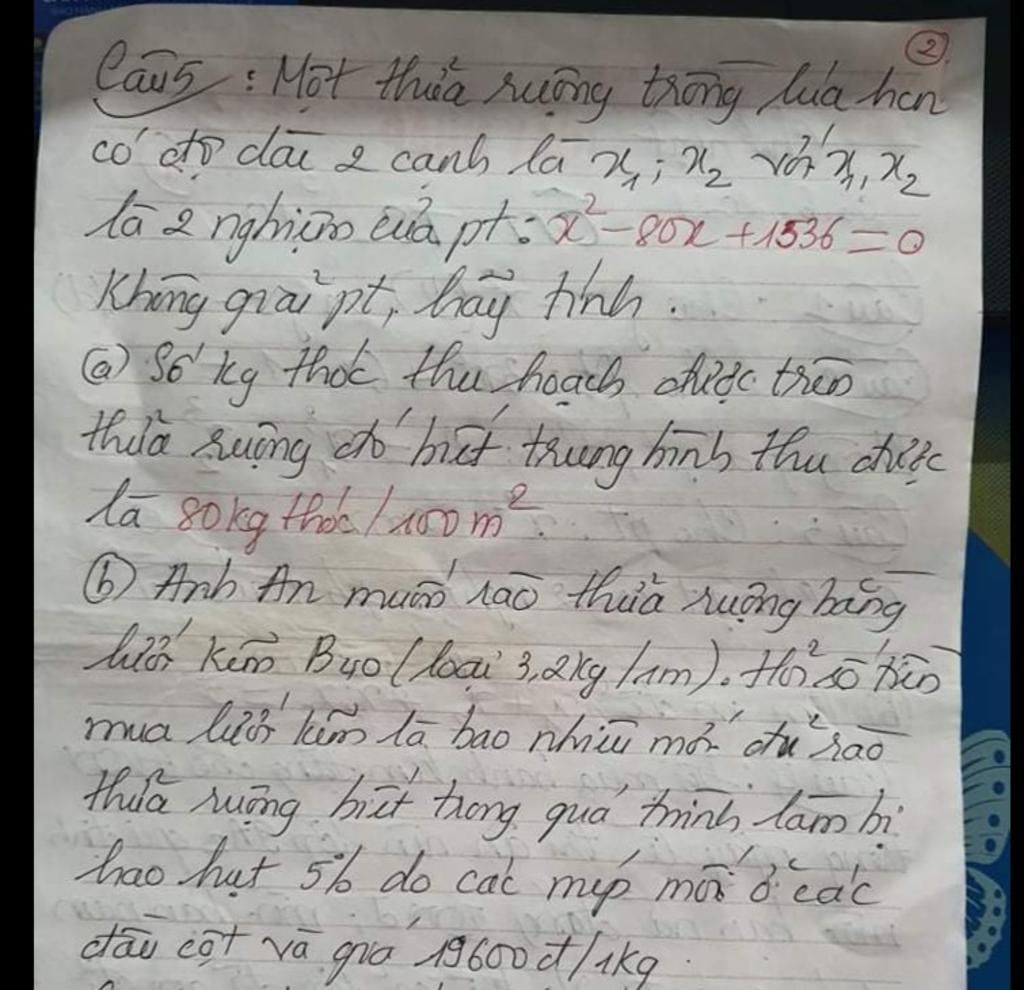 ②
Câu 5: Một thửa ruộng trồng lúa hcn
có độ dài 2 cạnh là x₁; x₂ với x₁, x₂
là 2 nghiệm của pt: x² - 80x + 1536 = 0
Không giải pt, hãy tính.
ⓐ Số kg thóc thu hoạch được trên
thửa ruộng đó biết trung bình thu được
là 80kg thóc/100m²
ⓑ Anh An muốn rào thửa ruộng bằng
lưới kẽm B40 (loại 3,2kg/1m). Hỏi số tiền
mua lưới kẽm là bao nhiêu mới đủ rào
thửa ruộng biết trong quá trình làm bị
hao hụt 5% do các mép mối ở các
đầu cột và giá 19600đ/1kg.